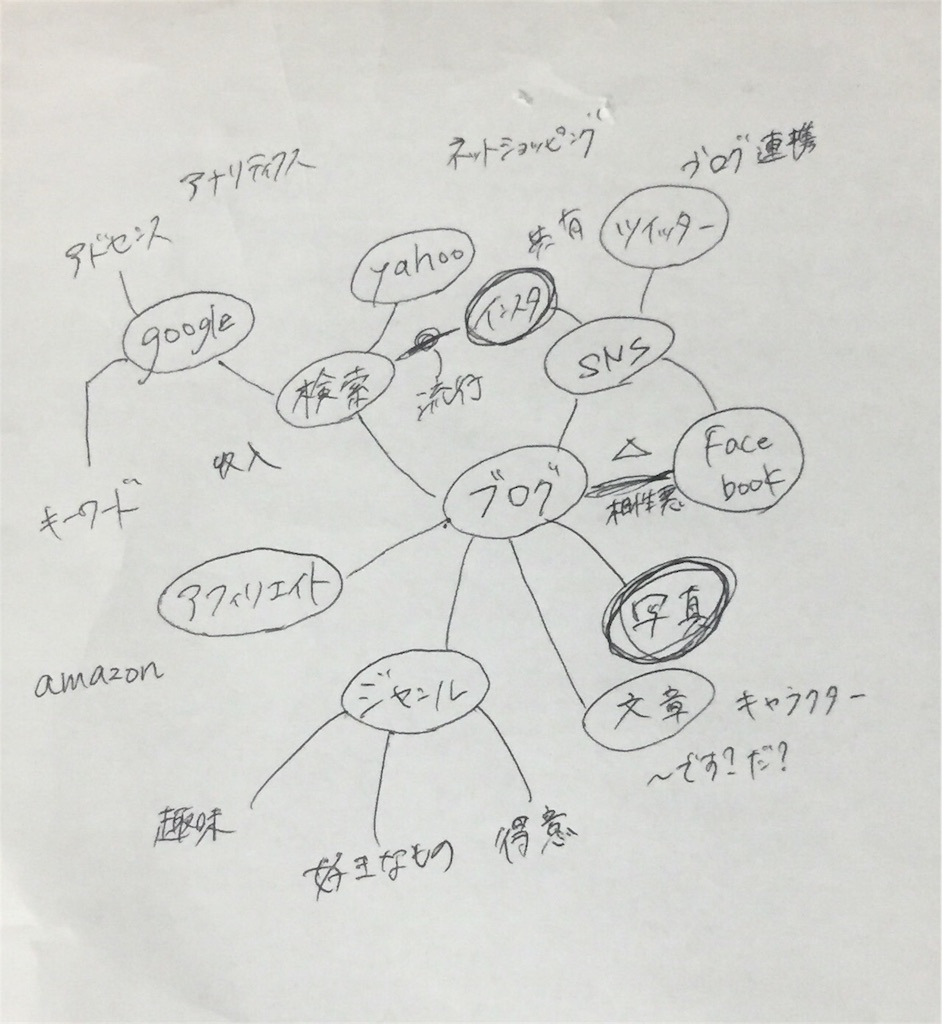 ネットショッピング
ブログ連携
アナリティクス
アドセンス
共有
ツイッター
yahoo
インスタ
google
SNS
検索
流行
Face
book
△
収入
ブログ
相性悪
キーワード
アフィリエイト
写真
amazon
ジャンル
文章
キャラクター
〜です?だ?
趣味
好きなもの
得意